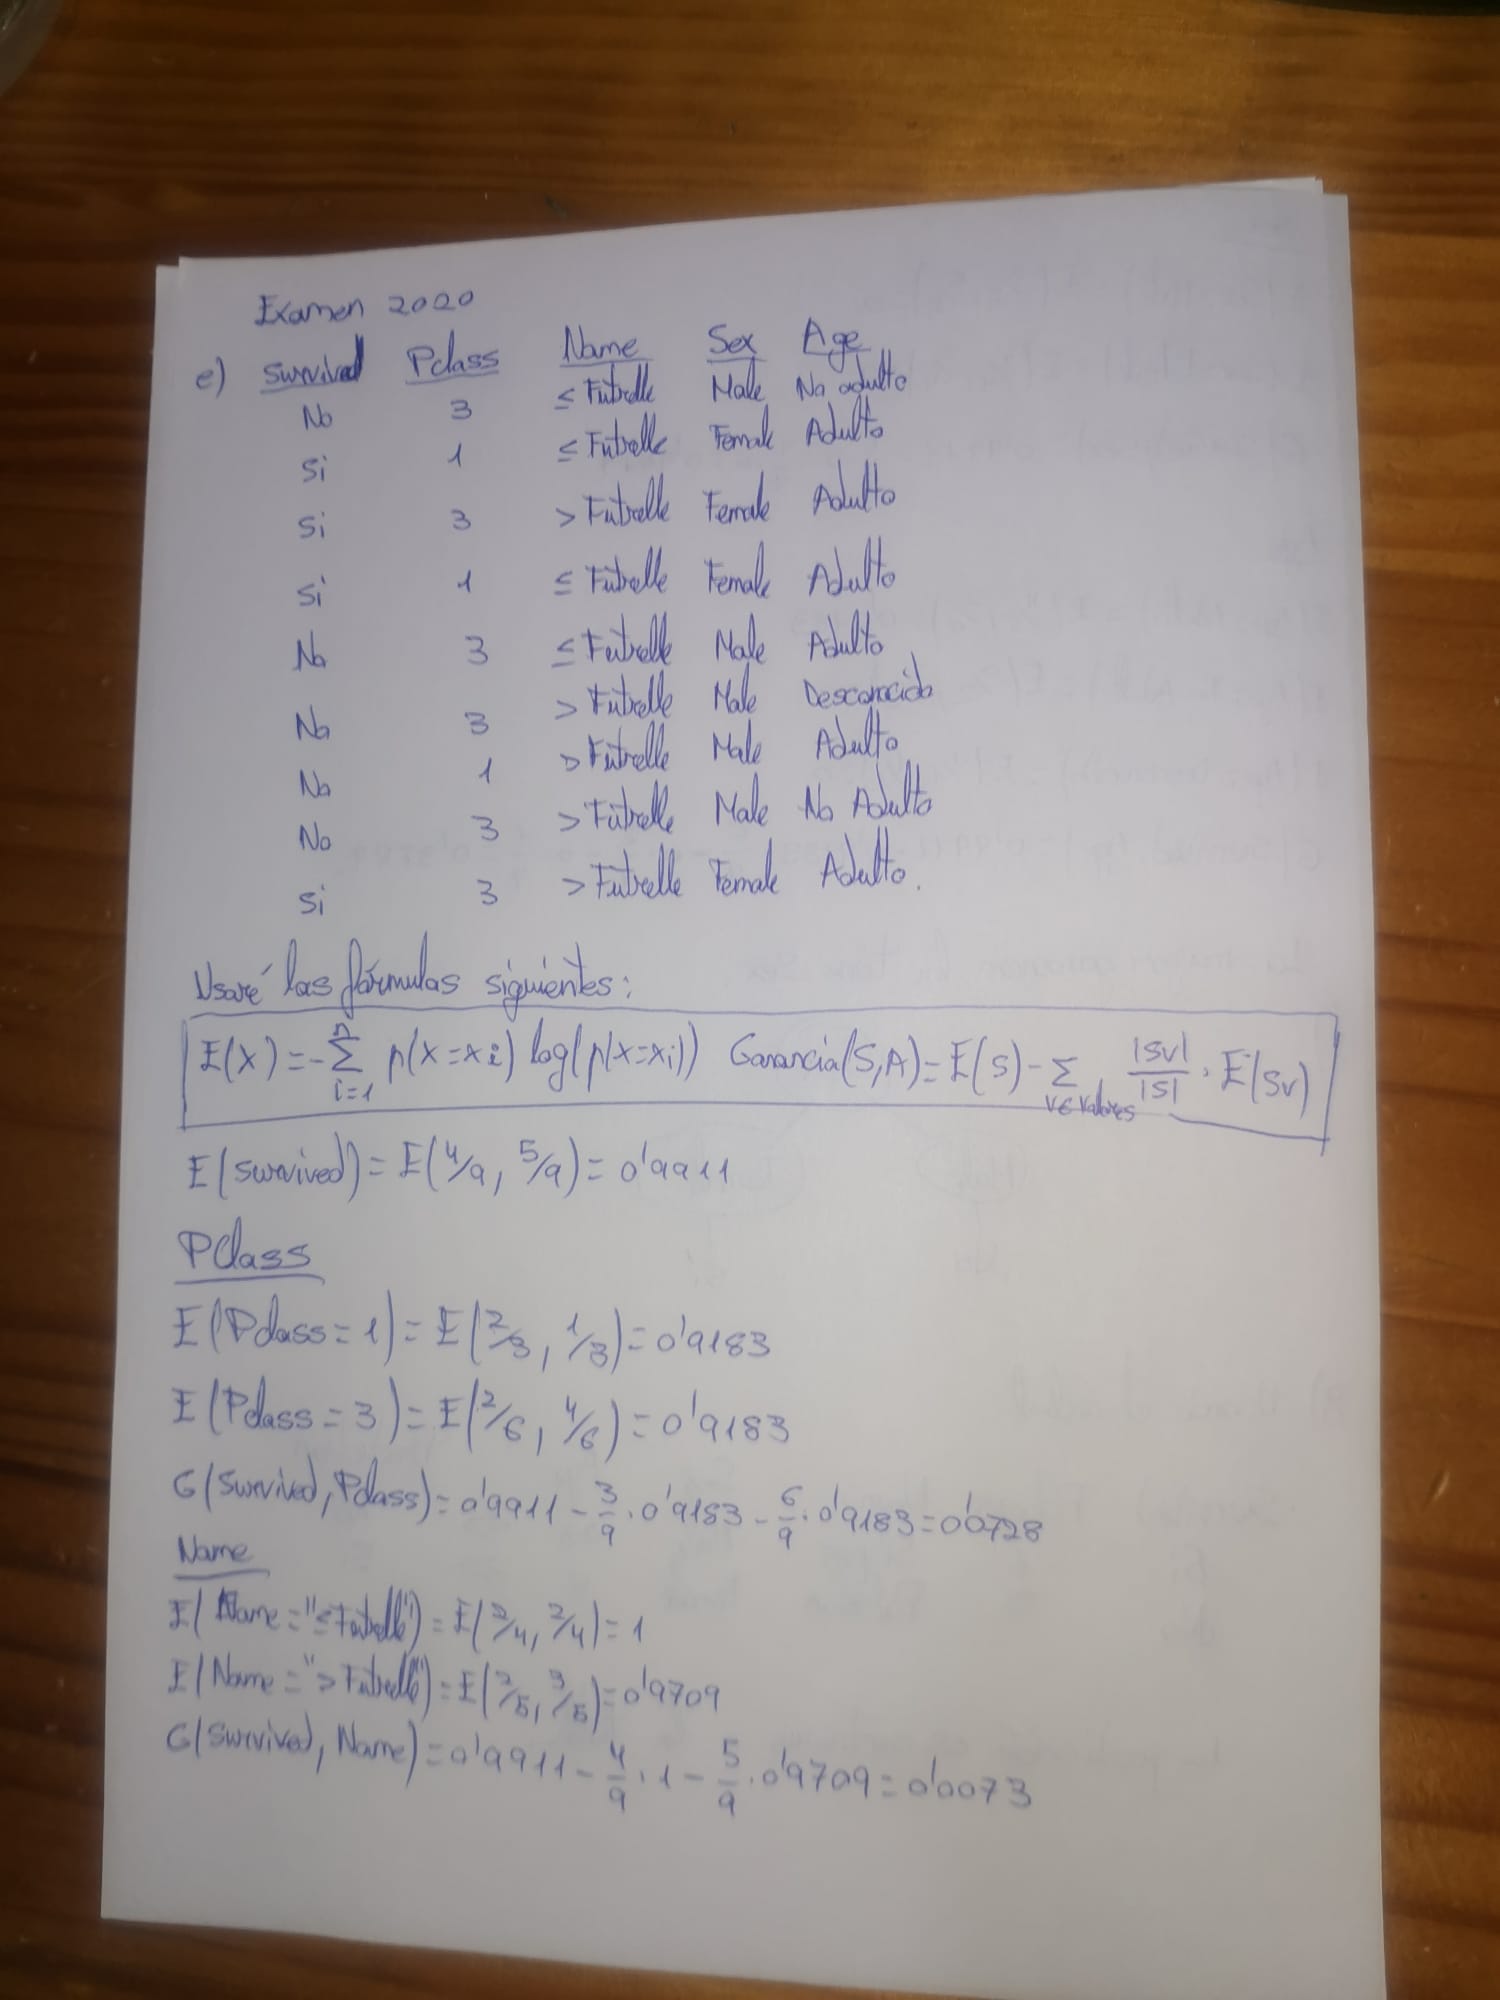 Examen 2020
e) Survived Pclass Name Sex Age
No 3 ≤ Futrelle Male No adulto
Si 1 ≤ Futrelle Female Adulto
Si 3 > Futrelle Female Adulto
Si 1 ≤ Futrelle Female Adulto
No 3 ≤ Futrelle Male Adulto
No 3 > Futrelle Male Desconocido
No 1 > Futrelle Male Adulto
No 3 > Futrelle Male No Adulto
Si 3 > Futrelle Female Adulto.
Usaré las fórmulas siguientes:
E(X) = -∑ᵢ₌₁ⁿ p(X=xi) log(p(X=xi)) Ganancia(S,A) = E(S) - ∑ v∈Valores |Sv|/|S| · E(Sv)
E(Survived) = E(4/9, 5/9) = 0'9911
PClass
E(Pclass = 1) = E(2/3, 1/3) = 0'9183
E(Pclass = 3) = E(2/6, 4/6) = 0'9183
G(Survived, Pclass) = 0'9911 - 3/9 · 0'9183 - 6/9 · 0'9183 = 0'0728
Name
E(Name = "≤Futrelle") = E(2/4, 2/4) = 1
E(Name = "> Futrelle") = E(2/5, 3/5) = 0'9709
G(Survived, Name) = 0'9911 - 4/9 · 1 - 5/9 · 0'9709 = 0'0073